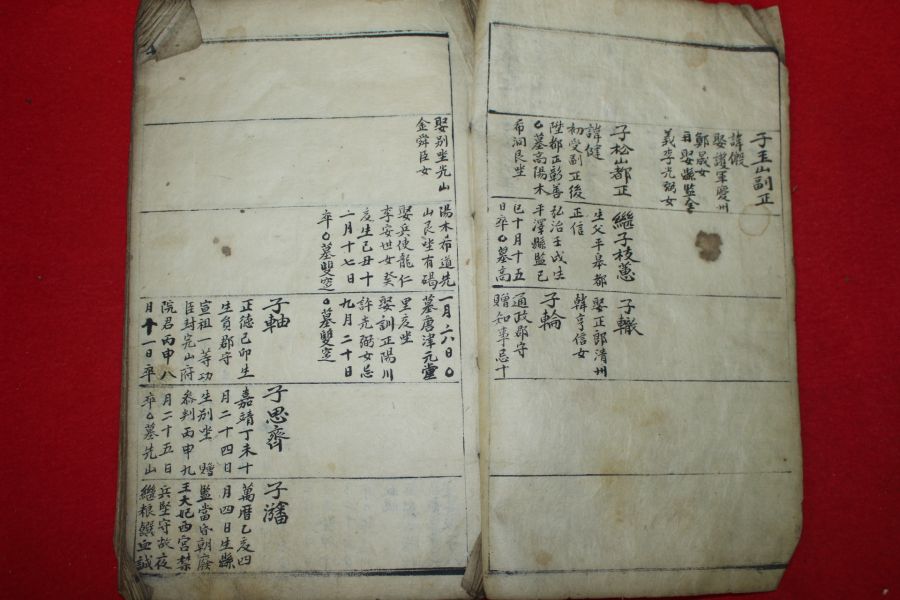 子玉山副正
諱儆
娶護軍慶州
鄭晟女
義李光弼女
子松山都正
諱健
初受副正後
陞都正彰善
○墓高陽木
希洞艮坐
繼子枝蕙
生父平皐都
正信
弘治壬戌生
平澤縣監己
巳十月十五
日卒○墓高
子轍
娶正郎清州
韓亨信女
子輪
通政郡守
贈知事忌十
娶別坐光山
金舜臣女
陽木希道先
山艮坐有碣
娶兵使龍仁
李安世女癸
亥生己丑十
二月十七日
卒○墓雙窆
一月二六日○
墓唐津元堂
里亥坐
娶訓正陽川
許光弼女忌
九月二十日
○墓雙窆
子軸
正德己卯生
生負郡守
宣祖一等功
臣封完山府
院君丙申八
月十一日卒
子思齊
嘉靖丁未十
月二十四日
生別坐 贈
參判丙申九
月二十五日
卒○墓先山
子瀋
萬曆乙亥四
月四日生縣
監當昏朝廢
王大妃西宮禁
兵堅守故夜
繼根饌血誠